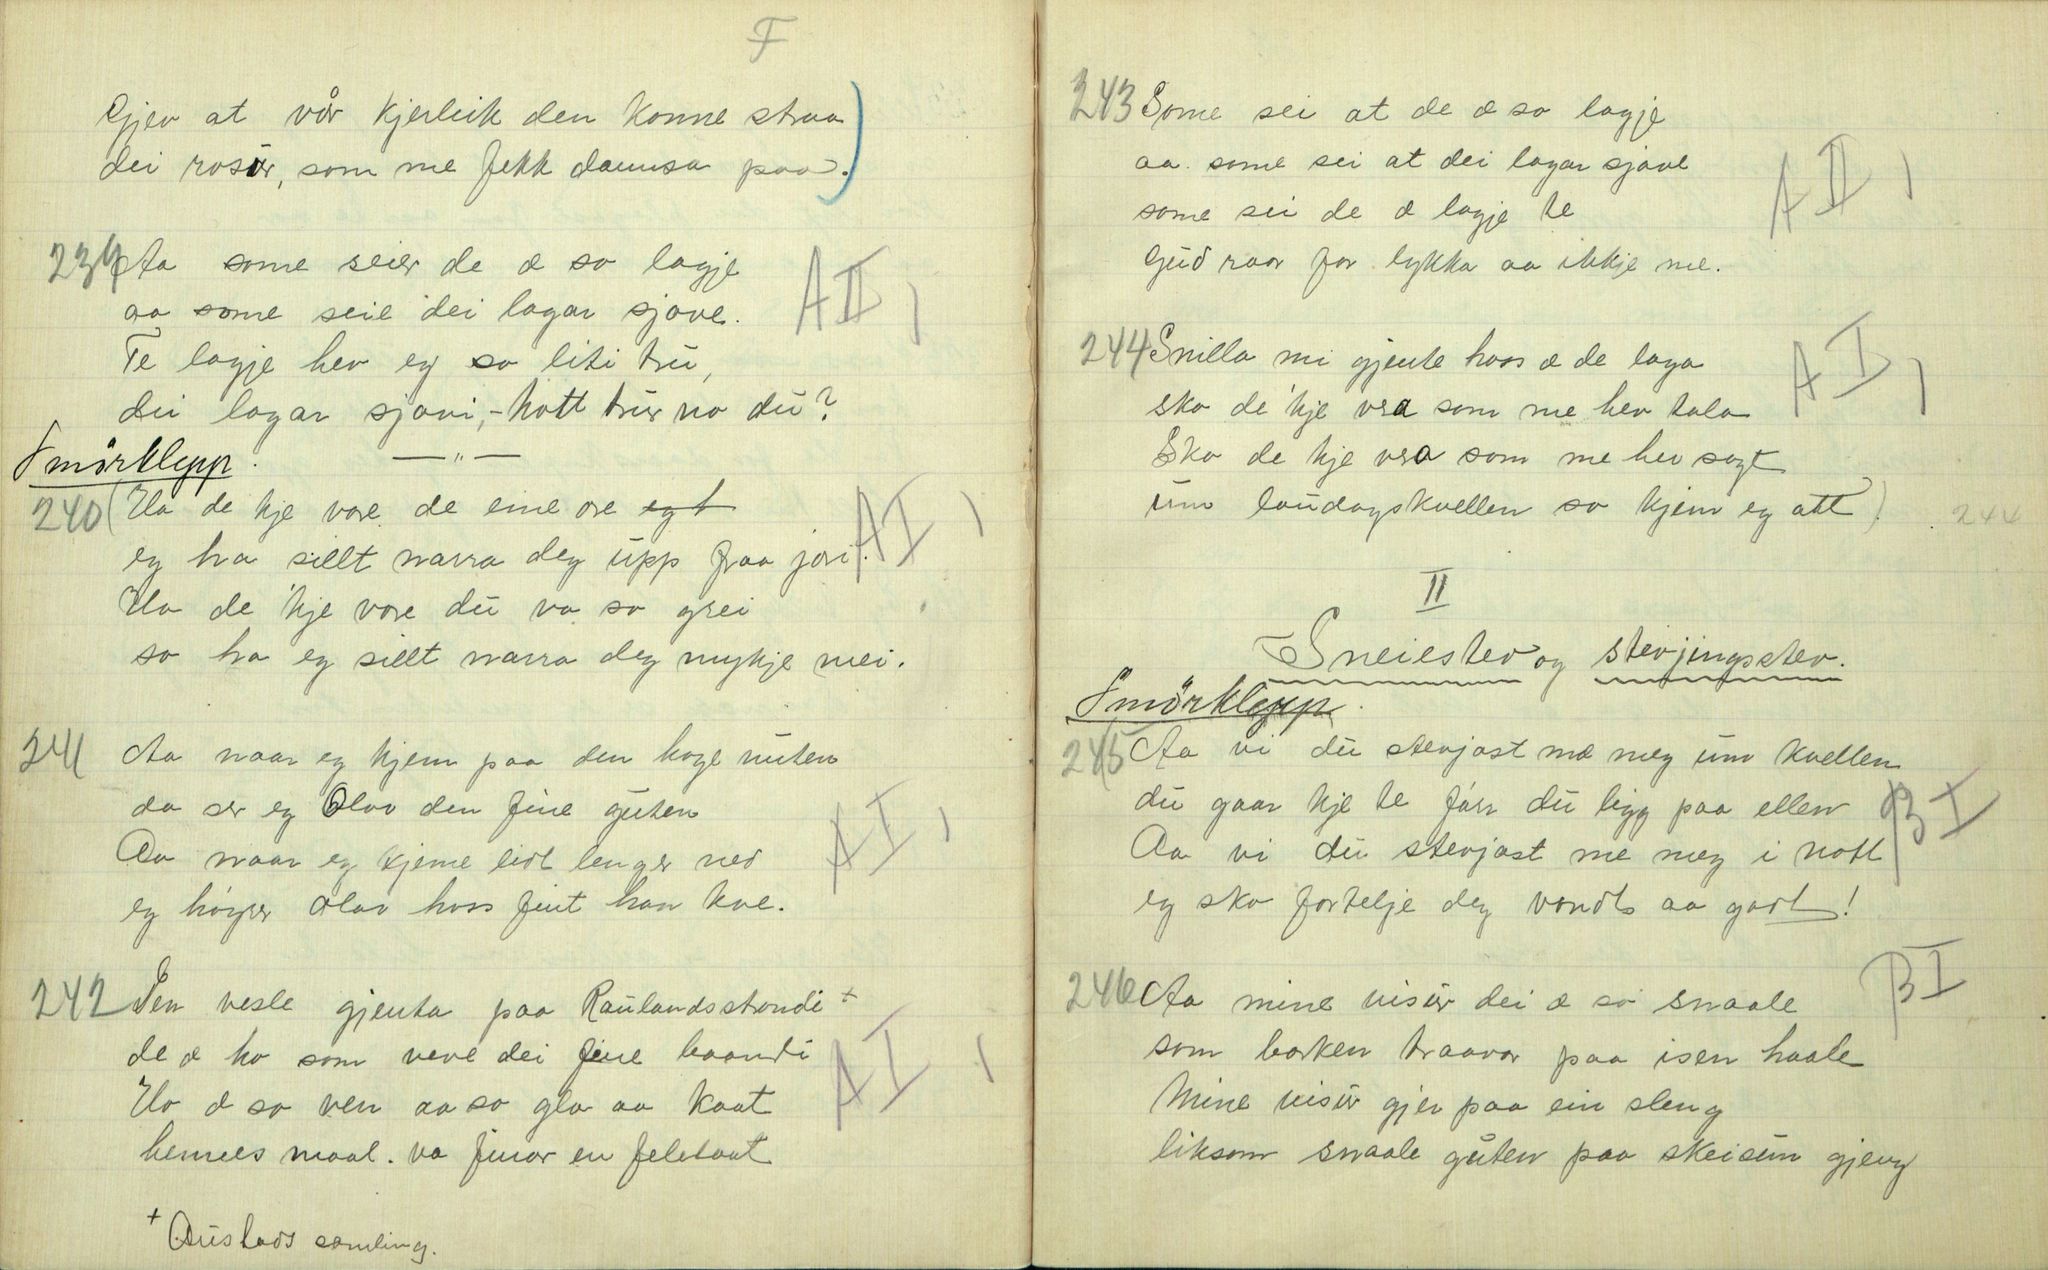 F
Gjev at vår kjerleik den konne straa
dei rosur, som me fekk dannsa paa.)
239 Aa some seier de æ so lagje
aa some seie dei lagar sjave.
Te lagje hev eg so liti tru,
dei lagar sjavi, - hott trur no du?
Smörklepp. — " —
240 (Ha de kje vore de eine ore eg t
eg ha sillt narra deg upp fraa jori.
Ha de 'kje vore du va so grei
so ha eg sillt narra deg mykje mei.
AII,
AI,
241 Aa naar eg kjem paa den hoge nuten
da ser eg Olav den fine guten
Aa naar eg kjeme lidt lenger ned
eg höyrer Olav hoss fint han kve.
AI,
242 Den vesle gjenta paa Raulandsstrondi +
de æ ho som veve dei fine baandi
Ho æ so ven aa so gla aa kaat
hennes maal. va finar en felelaat
AI,
+ Austads samling.
243 Some sei at de æ so lagje
aa some sei at dei lagar sjave
some sei de æ lagje te
Gud raar for lykka aa ikkje me.
AII,
244 Snilla mi gjente hoss æ de laga
ska de 'kje vera som me hev tala
Ska de 'kje vera som me hev sagt
um laudagskvellen so kjem eg att). 244
AI,
II
Sneiestev og stevjingsstev.
Smörklepp.
245 Aa vi du stevjast mæ meg um kvellen
du gaar kje te fårr du ligg paa ellen
Aa vi du stevjast me meg i nott
eg ska fortelje deg vondt aa godt!
BI
246 Aa mine visur dei æ so snaale
som borken traavar paa isen haale
Mine visur gjev paa ein sleng
liksom snaale guten paa skeisum gjeng
BI